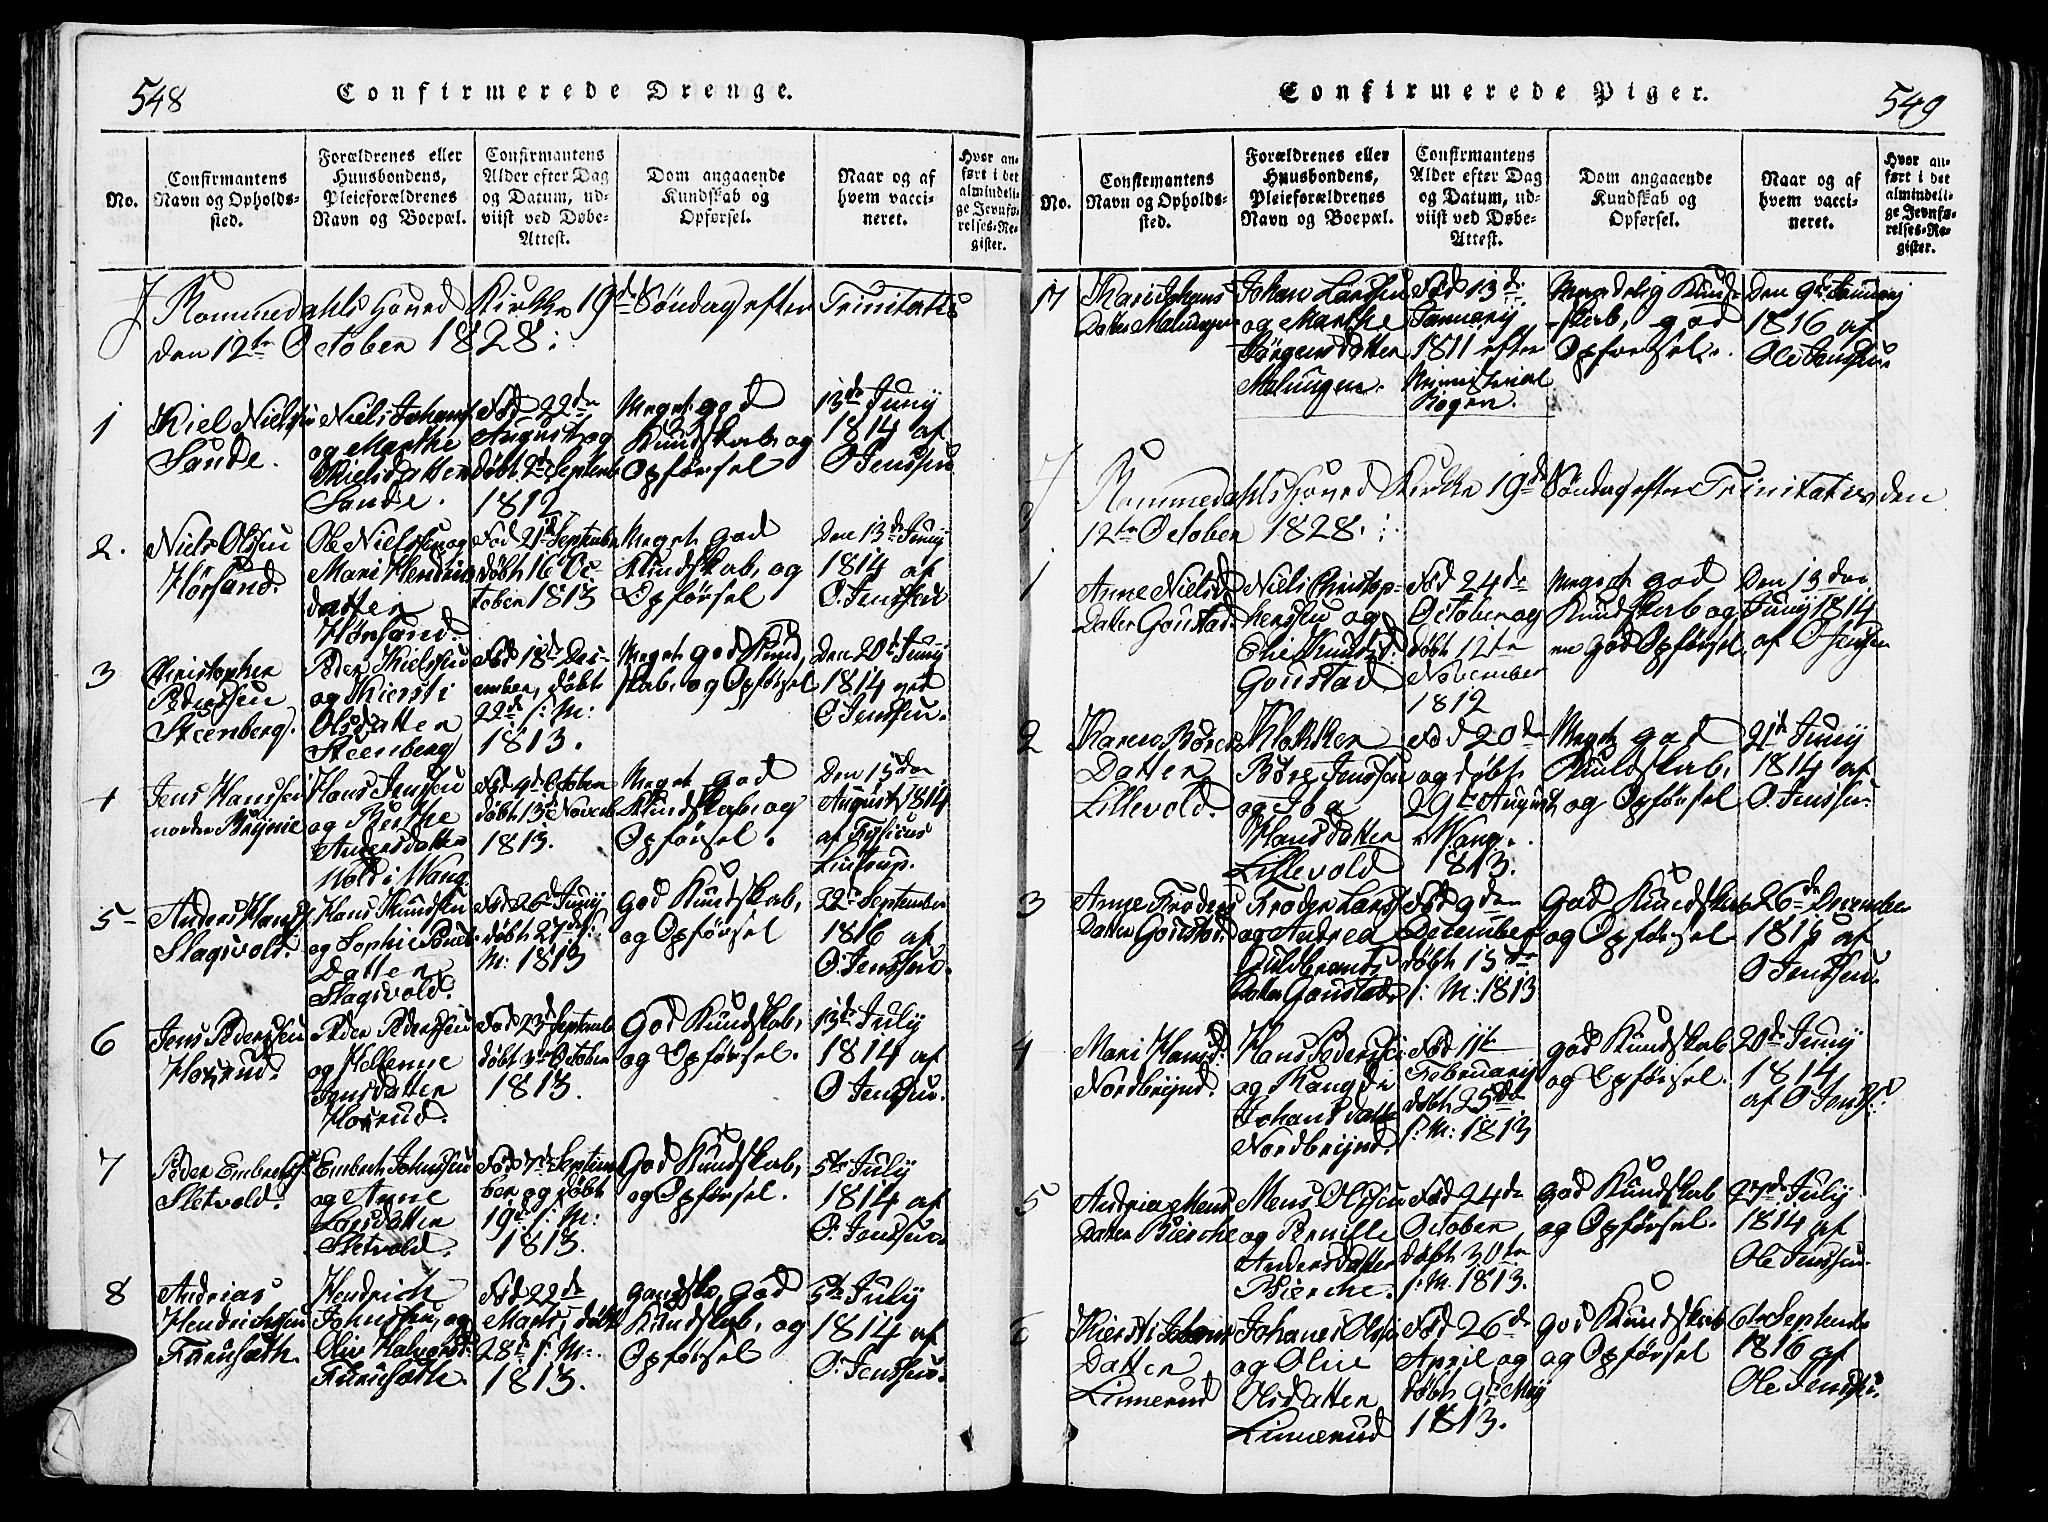 548
Confirmerede Drenge.
No.
Confirmantens
Navn og Opholds-
sted.
Forældrenes eller
Huusbondens,
Pleieforældrenes
Navn og Boepæl.
Confirmantens
Alder efter Dag
og Datum, ud-
viist ved Døbe-
Attest.
Dom angaaende
Kundskab og
Opførsel.
Naar og af
hvem vacci-
neret.
Hvor an-
ført i det
almindeli-
ge Jevnfø-
relses-Re-
gister.
I Rommedahls Hoved Kirke 19de Søndag efter Trinitatis
den 12te October 1828:
1
Kiel Nielsen
Sande.
Niels Johans
og Marthe
Kielsdatter
Sande.
Född 22de
August og
døbt 2de Septembr
1812
Meget god
Kundskab og
Opførsel
13de Juny
1814 af
O Jenssen
2.
Niels Olssen
Hørsand.
Ole Nielssen og
Mari Hendrics
datter
Hørsand.
Fød 21de September
døbt 16 Oc
tober 1813
Meget god
Kundskab, og
Opførsel
Den 13de Juny
1814 af
O. Jenssen
3
Christopher
Pederssen
Steenberg.
Peder Kielssen
og Kiersti
Olsdatter
Steenberg
Fød 18de Dec-
ember, døbt
22de s: M:
1813.
Meget god Kund,
skab, og Opførsel
Den 20de Juny
1814 ved
O Jenssen.
4
Jens Hanssen
nordre Brynie
Hans Jenssen
og Berthe
Andersdatter
Wold i Wang
Fød 9de October
døbt 13de Novemb
1813.
Meget god
Kundskab, og
Opførsel.
Den 15den
August 1814
af Fysicus
Lintrup.
5
Anders Hans:
Slagsvold.
Hans Knudsen
og Sophie Povels
Datter
Slagsvold.
Fød 26de Juny
døbt 27de s:
M: 1813
God Kundskab,
og Opførsel
22de September
1816 af
O: Jenssen.
6
Jens Pederssen
Horrud.
Peder Pederssen
og Hellenne
Jensdatter
Horrud.
Fød 23de September
døbt 3de October
1813.
God Kundskab,
og Opførsel.
13de July
1814 af
O Jenssen.
7
Peder Embrets:
Sletvold.
Embret Johnssen
og Anne
Larsdatter
Sletvold.
Fød 7de Septem
ber og døbt
19de s: M:
1813.
God Kundskab,
og Opførsel.
5te July
1814 af
O: Jenssen.
8
Andrias
Hendrichssen
Furusæth.
Hendrich
Johnssen, og
Olive Halvorsd:
Furusæth.
Fød 22de
Marts, døbt
28de s: M:
1813.
Gandske god
Kundskab, og
Opførsel
5te July
1814 af
O: Jenssen.
549
Confirmerede Piger.
No.
Confirmantens
Navn og Opholds-
sted.
Forældrenes eller
Huusbondens,
Pleieforældrenes
Navn og Boepæl.
Confirmantens
Alder efter Dag
og Datum, ud-
viist ved Døbe-
Attest.
Dom angaaende
Kundskab og
Opførsel.
Naar og af
hvem vacci-
neret.
Hvor an-
ført i det
almindeli-
ge Jevnfø-
relses-Re-
gister.
Mari Johans
Datter Malungen
Johan Larssen
og Marthe
Jørgensdatter
Malungen.
Fød 13de
January
1811 efter
Ministerial
Bogen.
Maadelig Kund-
skab, god
Opførsel.
Den 9de January
1816 af
Ole Jenssen.
I Rommedahls Hoved Kirke 19de Søndag efter Trinitatis, den
12te October 1828.:
1
Anne Niels
Datter Gonstad.
Niels Christop-
herssen og
Elie Knudsd:
Gonstad
Fød 24de
October og
døbt 12te
November
1812
Meget god
Kundskab og
en god Opførsel.
Den 13den
Juny 1814
af O Jenssen
2
Karen Børes
Datter
Lillevold.
Klokker
Børe Jenssen
og
Hansdatter
Lillevold
Fød 20de
og døbt
29te August
i Wang.
1813.
Meget god
Kundskab,
og Opførsel
21de Juny
1814 af
O. Jenssen.
3
Anne Froders
Datter Gonstad.
Froder Lars:
og Andrea
Guldbrands
Datter Gonstad.
Fød 9den
December
døbt 15de
s: M: 1813
God Kundskab
og Opførsel.
26de December
1815 af
O Jenssen.
4
Mari Hansd:
Nordbrynd.
Hans Pederssen
og Rangdi
Johansdatter
Nordbrynd.
Fød 11te
February
døbt 25de
s: M: 1813
god Kundskab
og Opførsel.
20de Juny
1814
af O Jenss:
5
Andrica Mons
Datter Bierche
Mons Olssen
og Pernille
Andersdatter
Bierche.
Fød 24de
October
døbt 30te
s: M. 1813.
god Kundskab
og Opførsel.
27de July
1814 af
Ole Jenssen.
6
Kiersti Johans
Datter
Linnerud
Johanes Olssen
og Oline
Olsdatter
Linnerud
Fød 26de
April og
døbt 9de May
1813.
god Kundskab
og Opførsel
6te September
1816 af
Ole Jenssen.